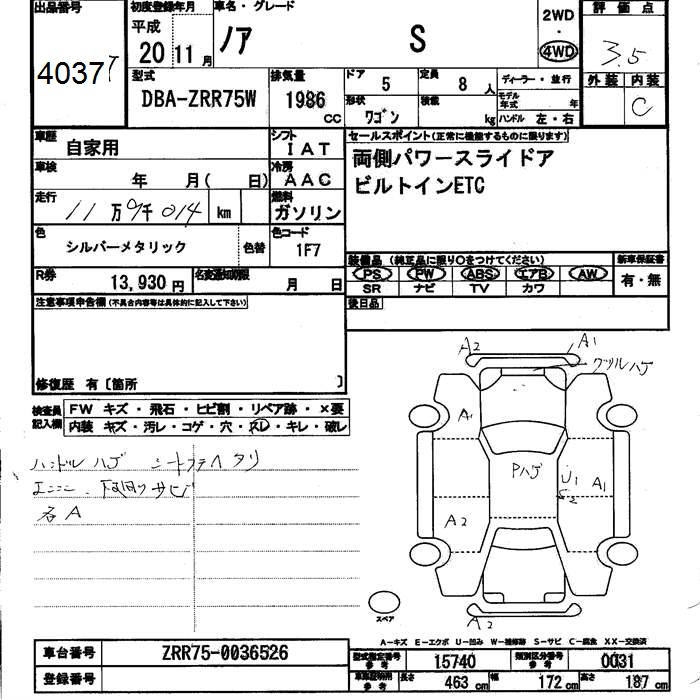 出品番号 初度登録年月 車名・グレード 2WD 評価点
40377 平成 20 11月 ノア S ・ 4WD 3.5
型式 排気量 ドア 5 定員 8人 ディーラー・並行 外装 内装
DBA-ZRR75W 1986 CC 形状 ワゴン 積載 kg モデル年式 年 C
ハンドル 左・右
車歴 自家用 シフト IAT セールスポイント(正常に機能するものに限ります)
車検 年 月( 日) 冷房 AAC 両側パワースライドア
走行 11万9千014 km 燃料 ガソリン ビルトインETC
色 シルバーメタリック 色替 色コード 1F7
装備品(純正品に限り○をつけてください) 新車保証書
R券 13,930円 名変通知期限 月 日 PS PW ABS エアB AW 有・無
SR ナビ TV カワ
注意事項申告欄(不具合内容等は具体的に記入して下さい) 後日品
修復歴 有〔箇所 〕
検査員記入欄 FW キズ・飛石・ヒビ割・リペア跡・×要
内装 キズ・汚レ・コゲ・穴・スレ・キレ・破レ
ハンドルハゲ シートフチヘタリ
下回りサビ
各A
A2 A1
A1
Pハゲ U1 S2 A1
A2
A2
スペア
A-キズ E-エクボ U-凹み W-補修跡 S-サビ C-腐食 XX-交換済
車台番号 ZRR75-0036526 型式指定番号 参考 15740 類別区分番号 参考 0031
登録番号 車車証明用 参考 長さ 463cm 幅 172cm 高さ 187cm